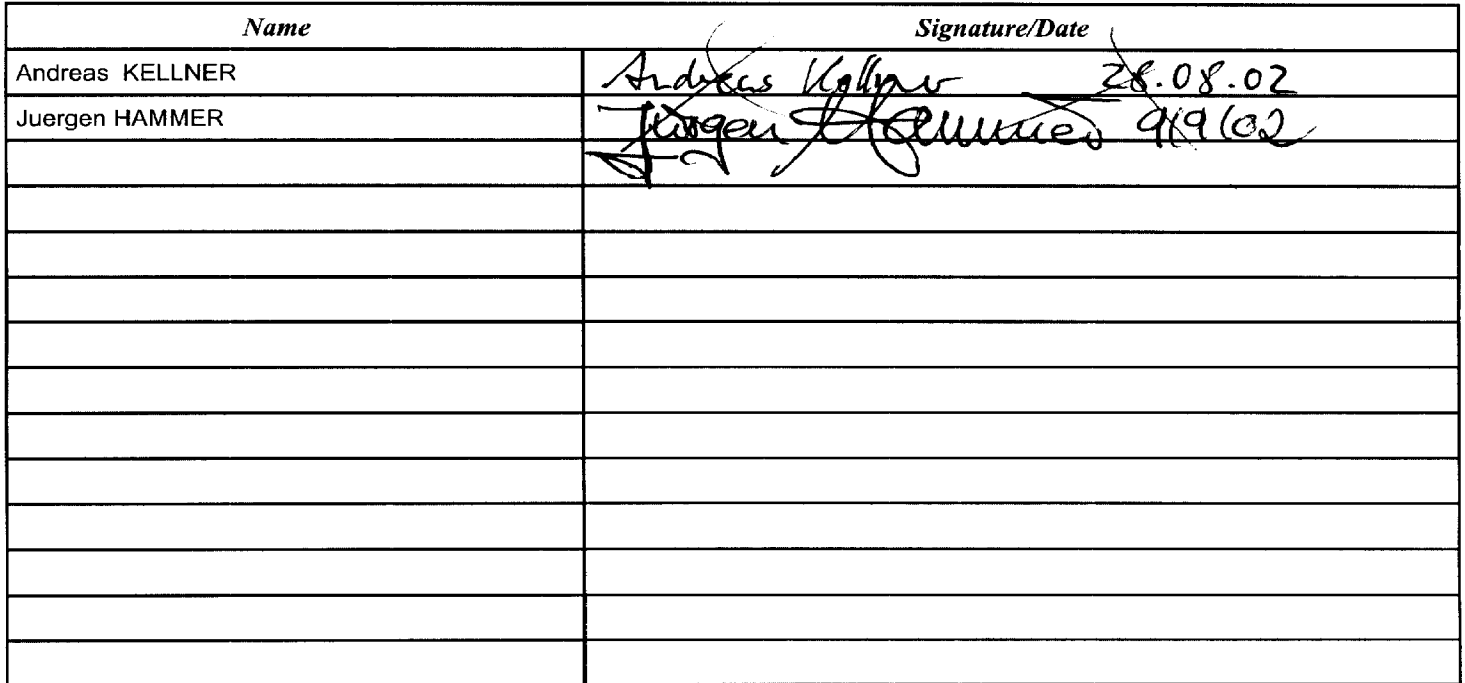 Name Signature/Date
Andreas KELLNER Andreas Kellner 28.08.02
Juergen HAMMER Jürgen Hammer 9/9/02